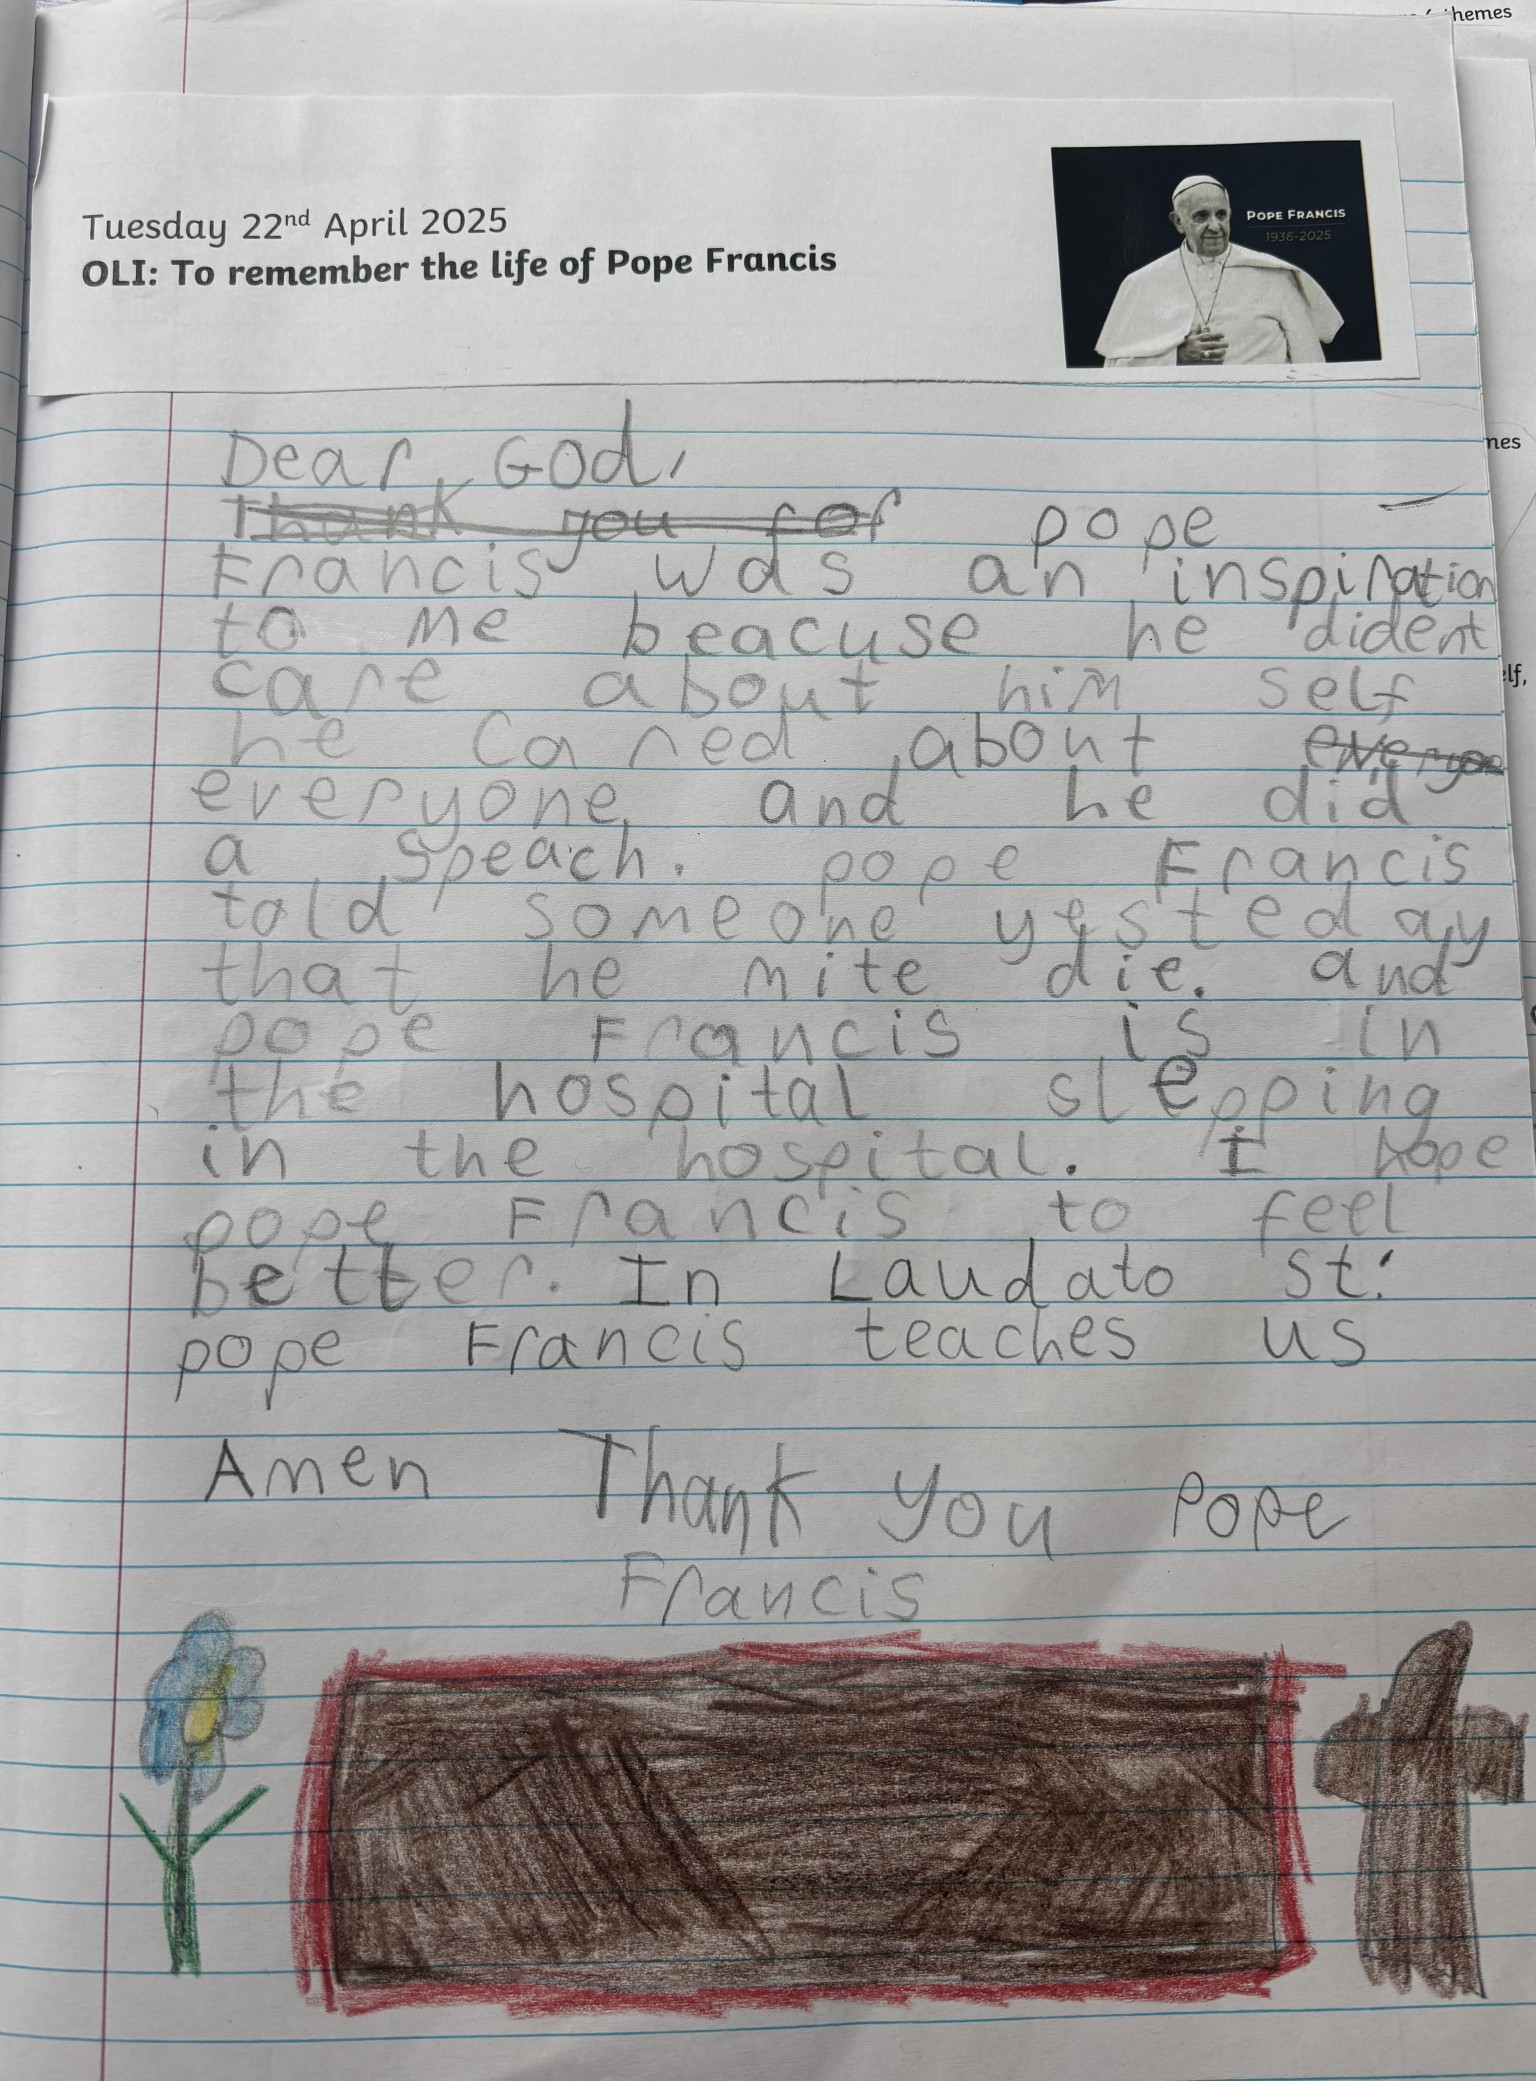 themes
Tuesday 22nd April 2025
OLI: To remember the life of Pope Francis
POPE FRANCIS
1936-2025
mes
elf,
Dear God,
Thank you for pope
Francis was an inspiration
to me beacuse he dident
care about him self
he cared about everyone
everyone and he did
a speach. pope Francis
told someone yesteday
that he mite die. and
pope Francis is in
the hospital slepping
in the hospital. I hope
pope Francis to feel
better. In Laudato st:
pope Francis teaches us
Amen Thank you Pope
Francis